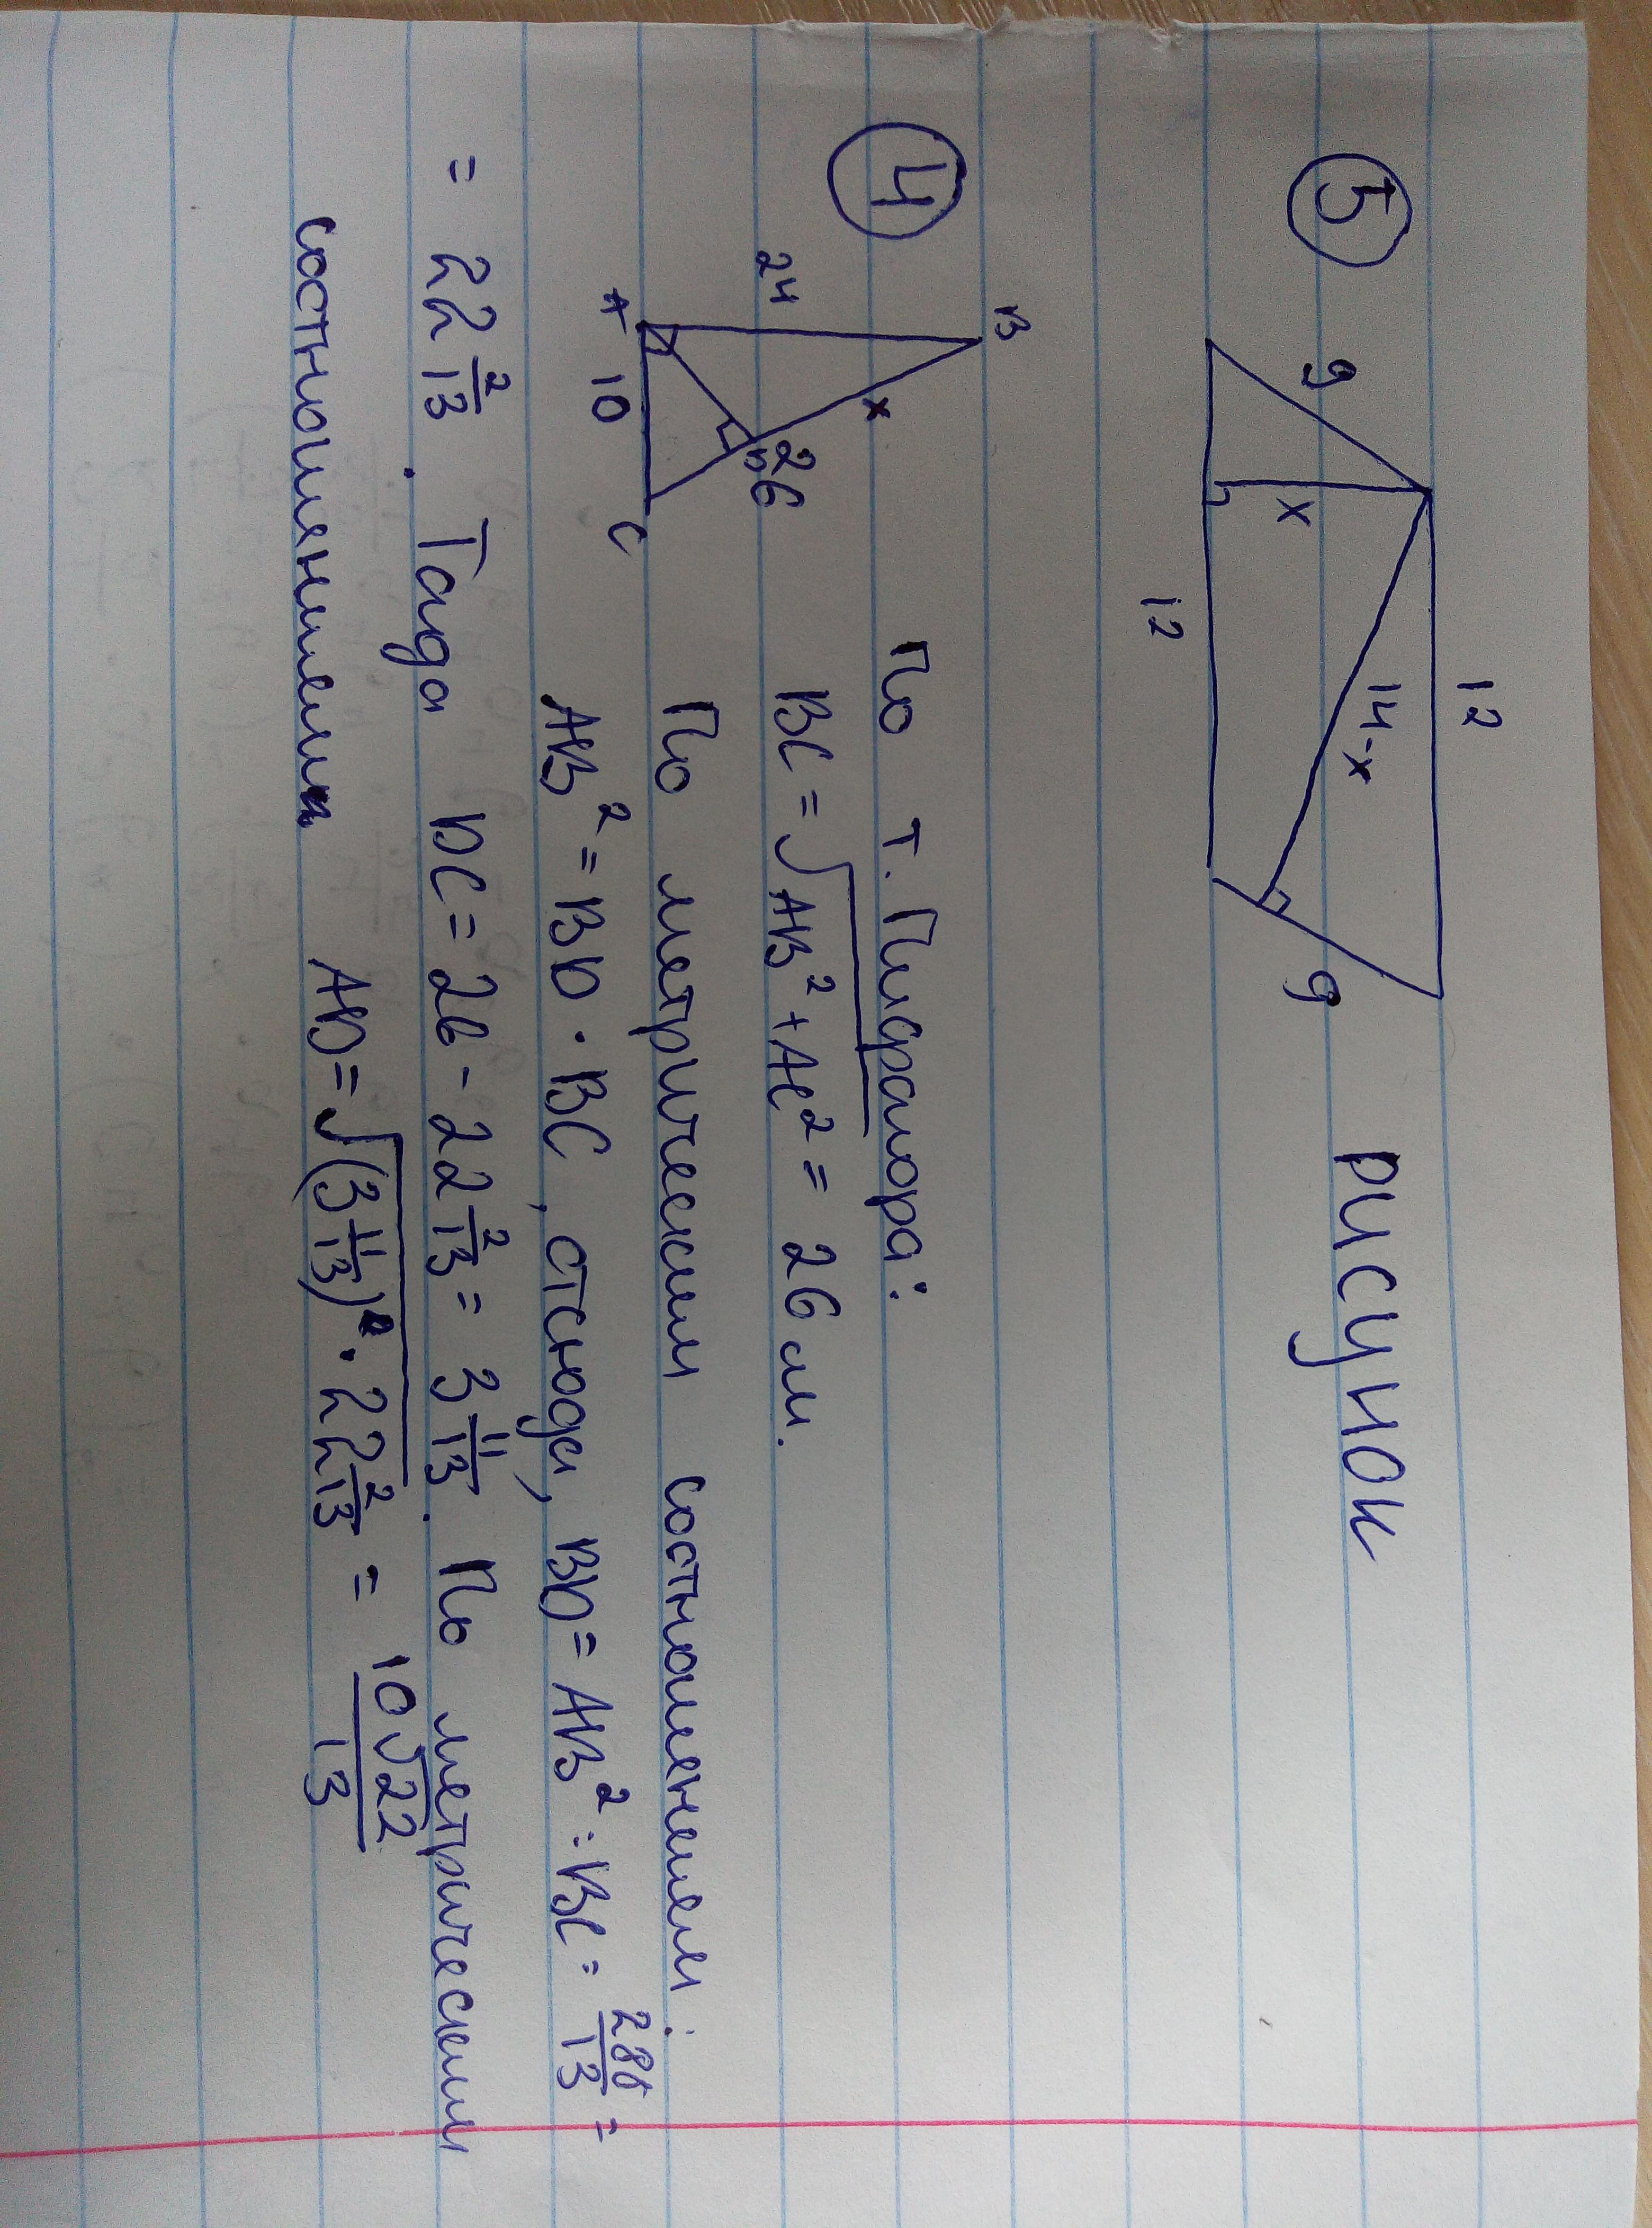 5
12
9
x
14-x
9
12
рисунок
4
B
24
x
26
D
A
10
C
По т. Пифагора:
BC = √AB² + AC² = 26 см.
По метрическим соотношениям:
AB² = BD · BC, отсюда, BD = AB² : BC = 288/13 =
= 22 2/13. Тогда DC = 26 - 22 2/13 = 3 11/13. По метрическим
соотношениям AD = √(3 11/13)² · 22 2/13 = 10√22/13